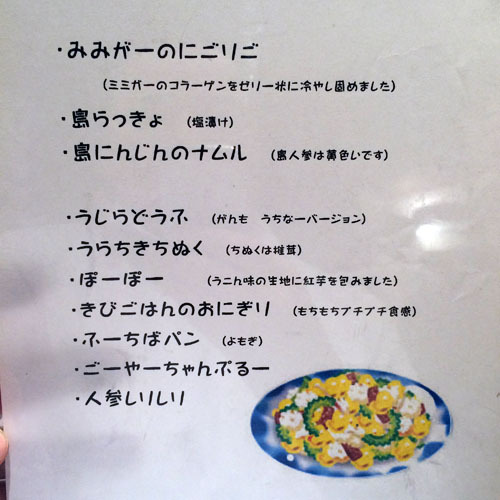 ・みみがーのにごりご
（ミミガーのコラーゲンをゼリー状に冷やし固めました）
・島らっきょ （塩漬け）
・島にんじんのナムル （島人参は黄色いです）
・うじらどうふ （がんも うちなーバージョン）
・うらちきちぬく （ちぬくは椎茸）
・ぽーぽー （うこん味の生地に紅芋を包みました）
・きびごはんのおにぎり （もちもちプチプチ食感）
・ふーちばパン （よもぎ）
・ごーやーちゃんぷるー
・人参しりしり